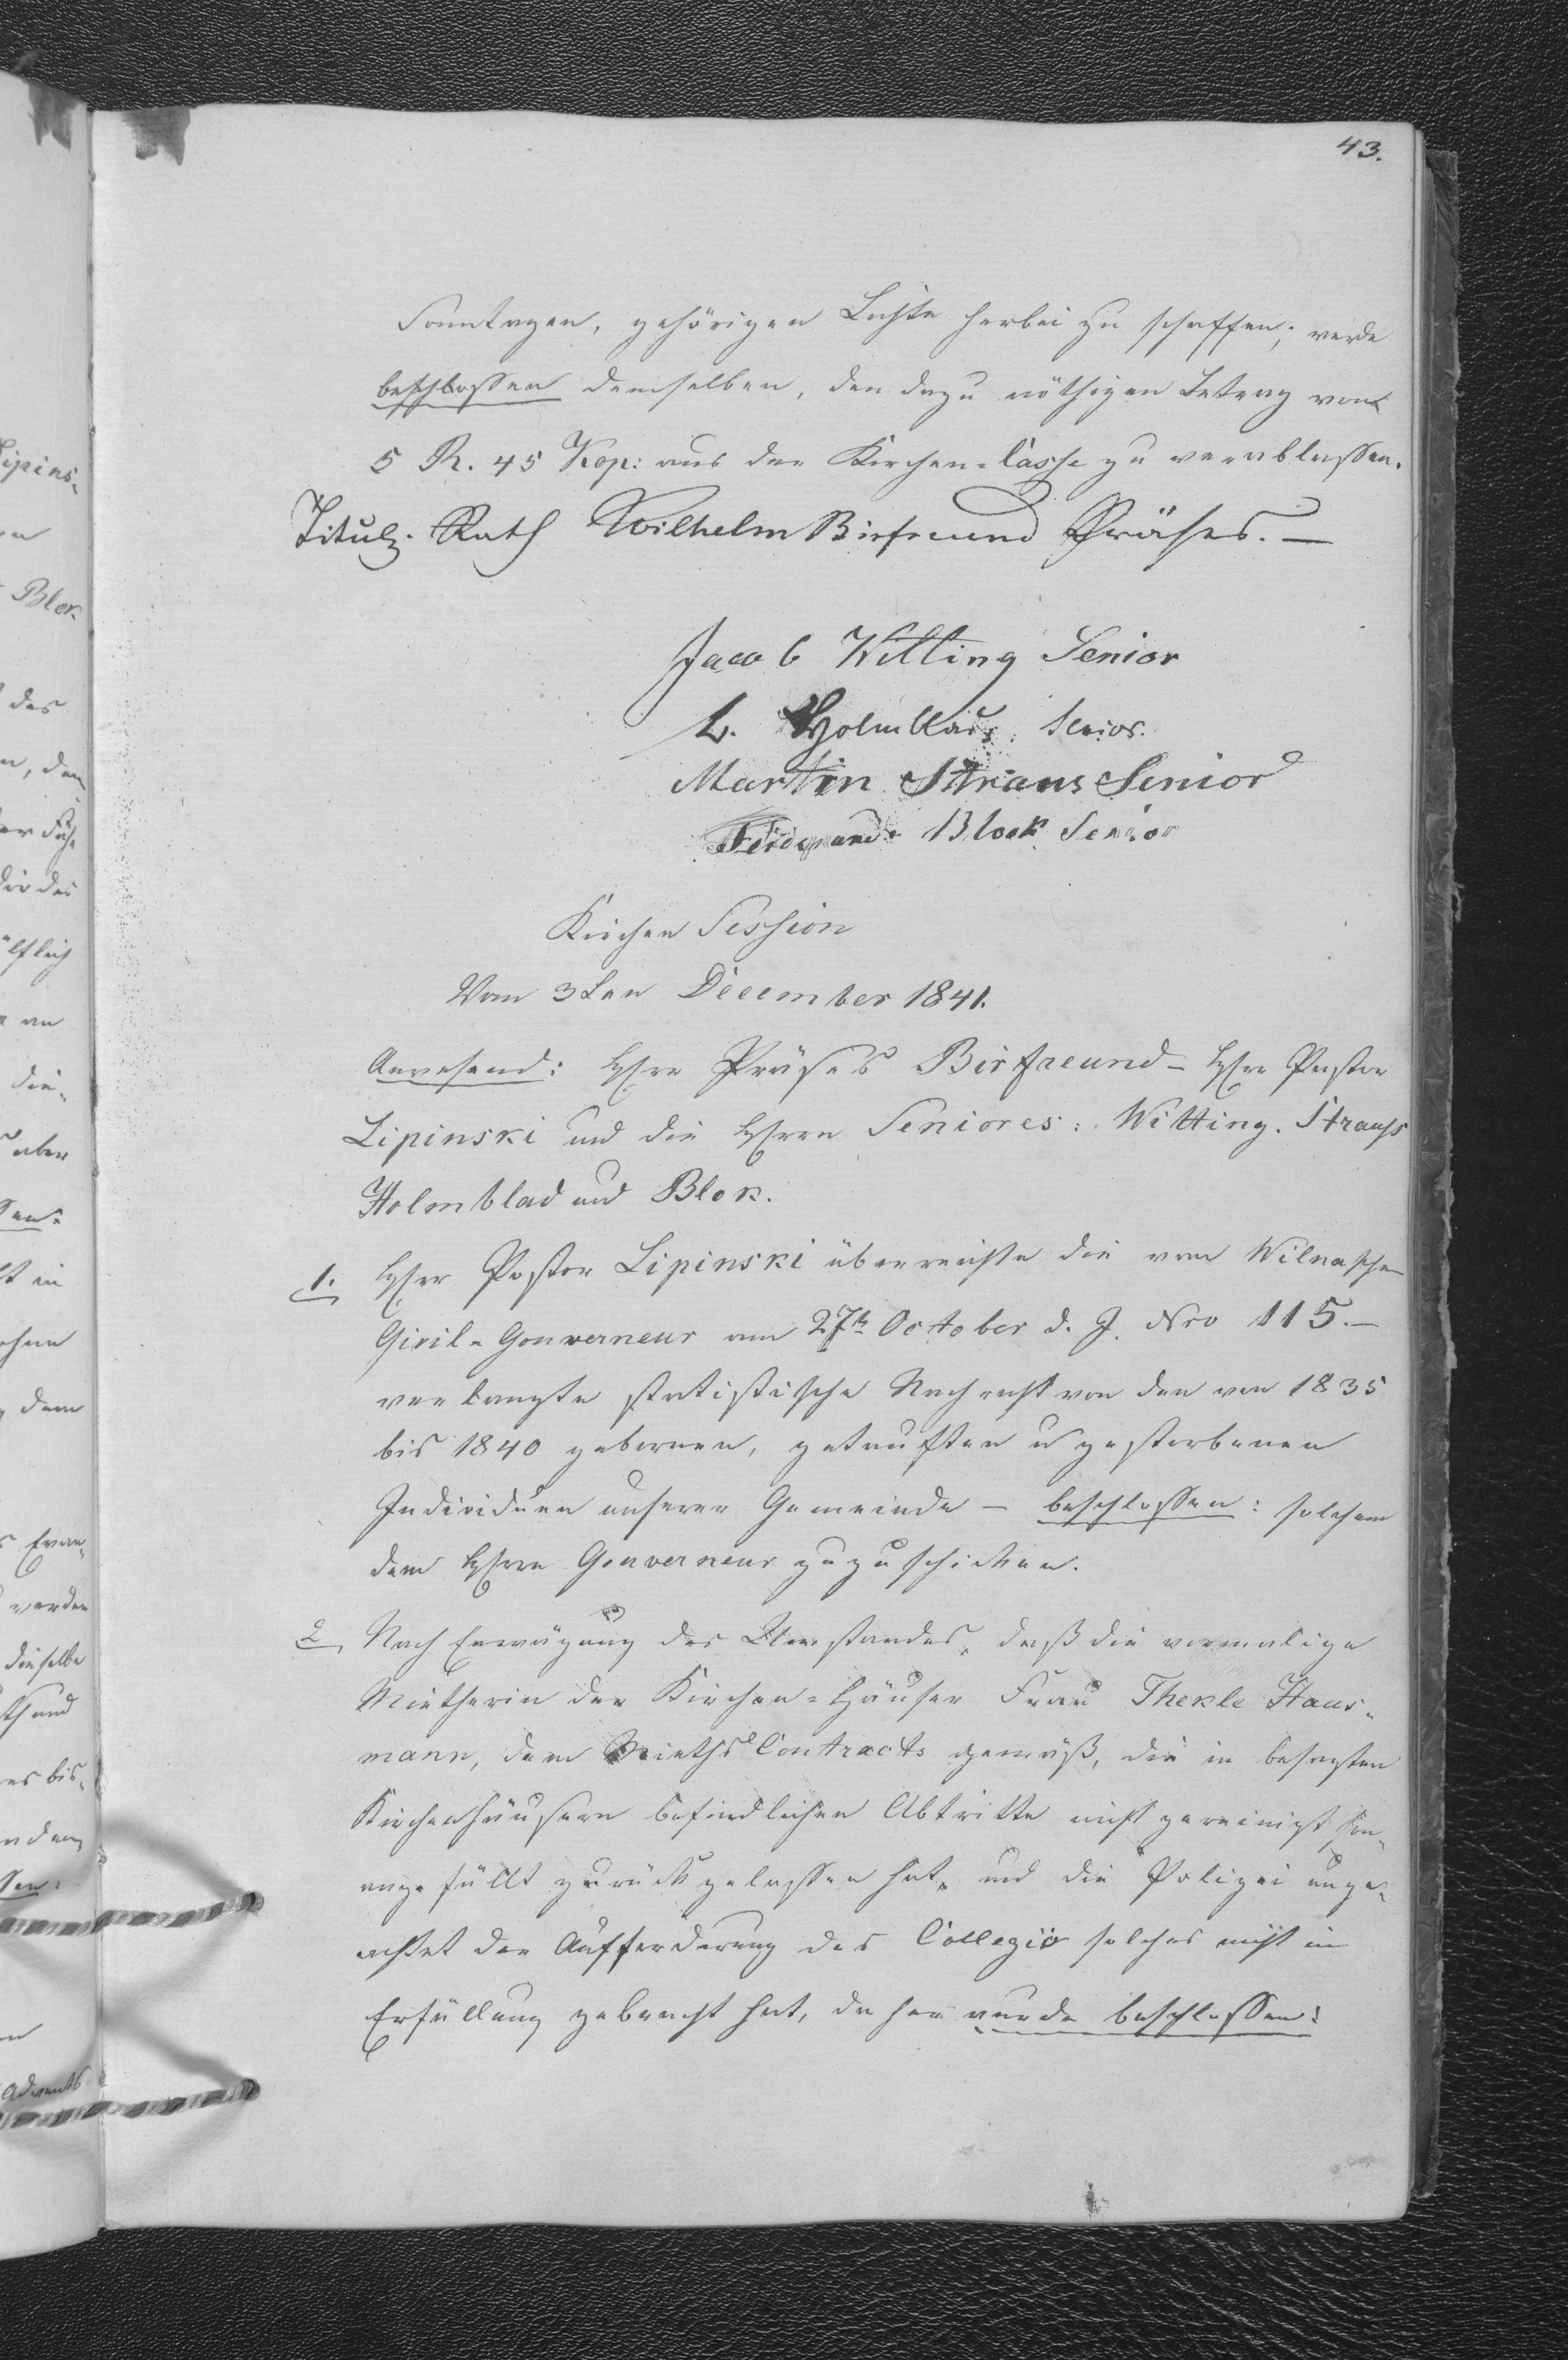 43.
Sonntagen, gehörigen Lichte herbei zu schaffen; werde
beschlossen demselben, den dazu nöthigen Betrag von
5 R. 45 Kop: aus der Kirchen-Casse zu verablassen.
Titulz. Rath Wilhelm Birfreund Präses. —
Jacob Witting Senior
L. Holmblad Senior.
Martin Straus Senior
Ferdinand Block Senior
Kirchen Session
Vom 3ten December 1841.
Anwesend: Herr Präses Birfreund – Herr Pastor
Lipinski und die Herrn Seniores: Witting. Strauss
Holmblad und Blok.
1. Herr Pastor Lipinski überreichte die vom Wilnaschen
Civil-Gouverneur am 27t October d. J. Nro 115.—
verlangte statistische Nachricht von den von 1835
bis 1840 gebornen, getauften u gestorbenen
Individuen unserer Gemeinde — beschlossen: solchem
dem Herrn Gouverneur zuzuschicken.
2 Nach Erwägung des Umstandes, daß die vormalige
Mietherin der Kirchen-Häuser Frau Thekle Haus-
mann, dem Mieths Contracts gemäß, die in besagten
Kirchenhäusern befindlichen Abtritte nicht gereinigt, son-
angefüllt zurückgelassen hat, und die Polizei unge-
achtet der Aufforderung des Collegio solches nicht in
Erfüllung gebracht hat, daher wurde beschlossen: